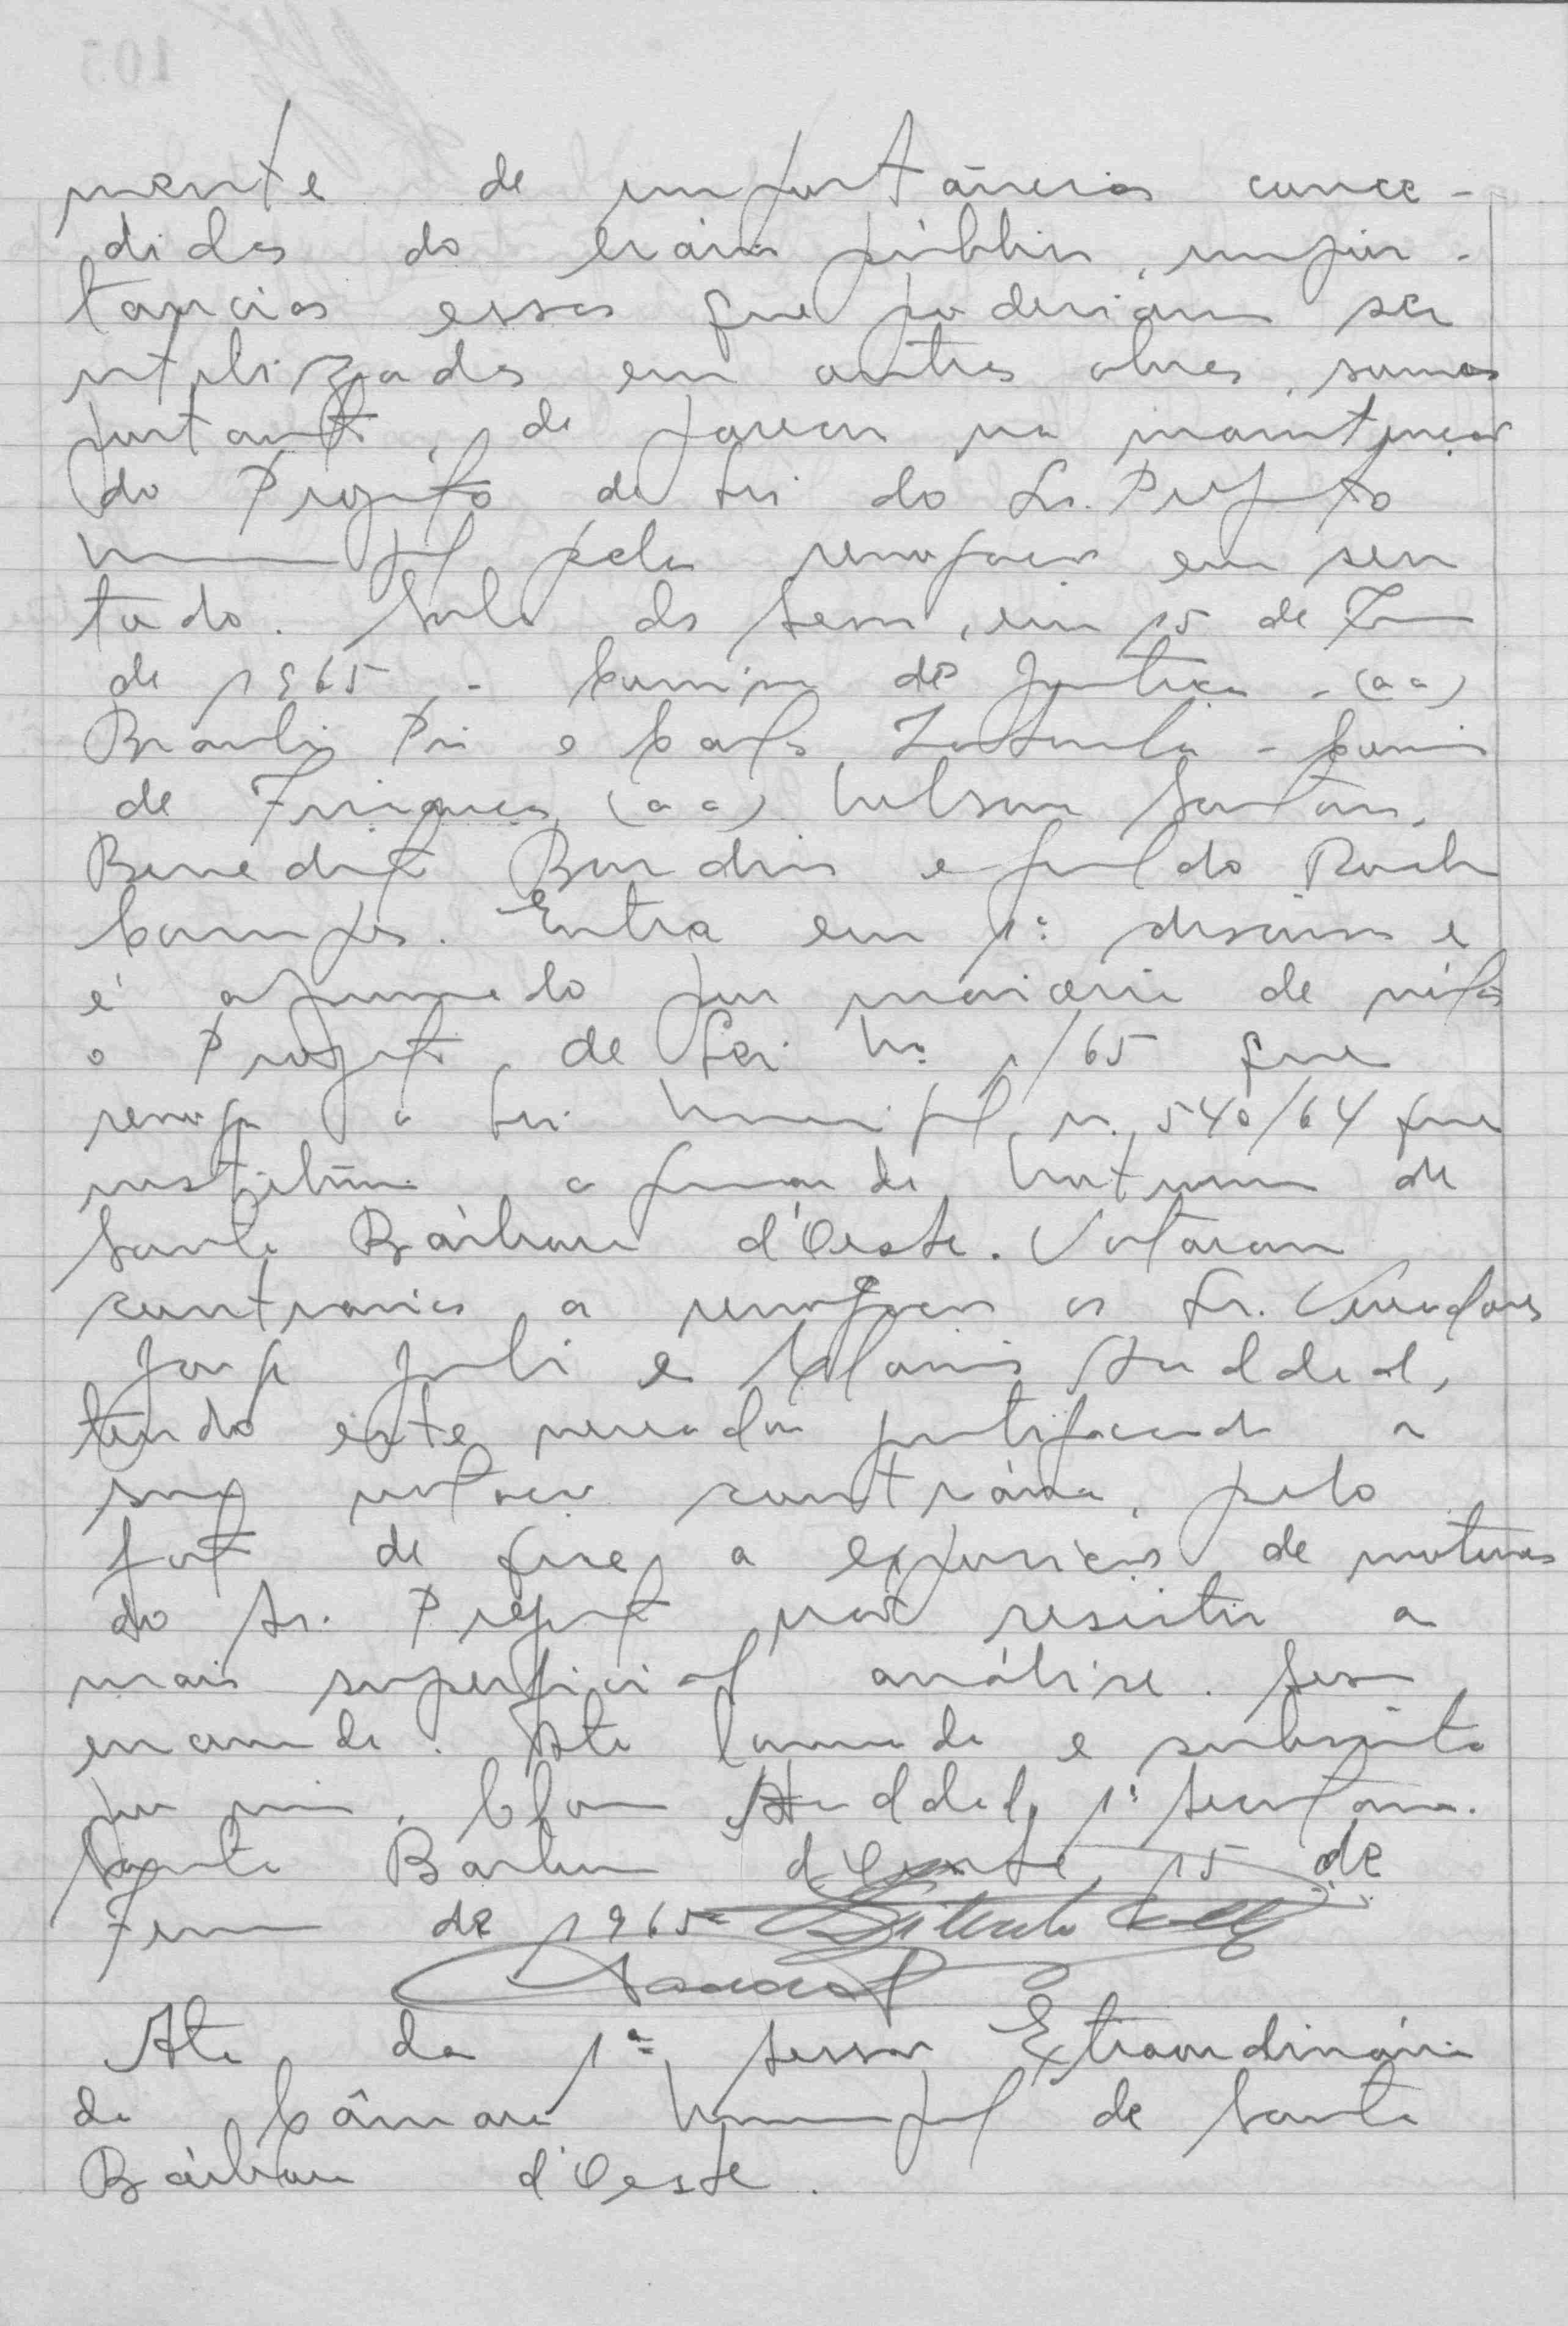 mente de importâncias conce-
didas do erário público, impor-
tancias essas que poderiam ser
utilizadas em outras obras, somos
portanto, de parecer na manutenção
do Projeto de Lei do Sr. Prefeito
Municipal pela revogação em seu
todo. Sala das Sessões, em 15 de Fev
de 1965. - Comissão de Justiça - (aa)
Braulio Pio e Carlos - Comissão
de Finanças (aa) Nelson
Benedito e Geraldo Rocha
Campos. Entra em 1ª discussão e
é aprovado por maioria de votos
o Projeto de Lei Nº 1/65 que
revoga a Lei Municipal n. 540/64 que
instituiu a Guarda Noturna de
Santa Bárbara d'Oeste. Votaram
contrários a revogação os Sr. Vereadores
Jorge Juli e
tendo este vereador justificado a
sua votação contrária, pelo
fato de que, a exposição de motivos
do Sr. Prefeito não resistir a
mais superficial análise. Sessão
encerrada. Ata lavrada e subscrita
por mim, 1º Secretário.
Santa Barbara d'Oeste, 15 de
Fevereiro de 1965
Ata da 1ª Sessão Extraordinária
da Câmara Municipal de Santa
Bárbara d'Oeste.